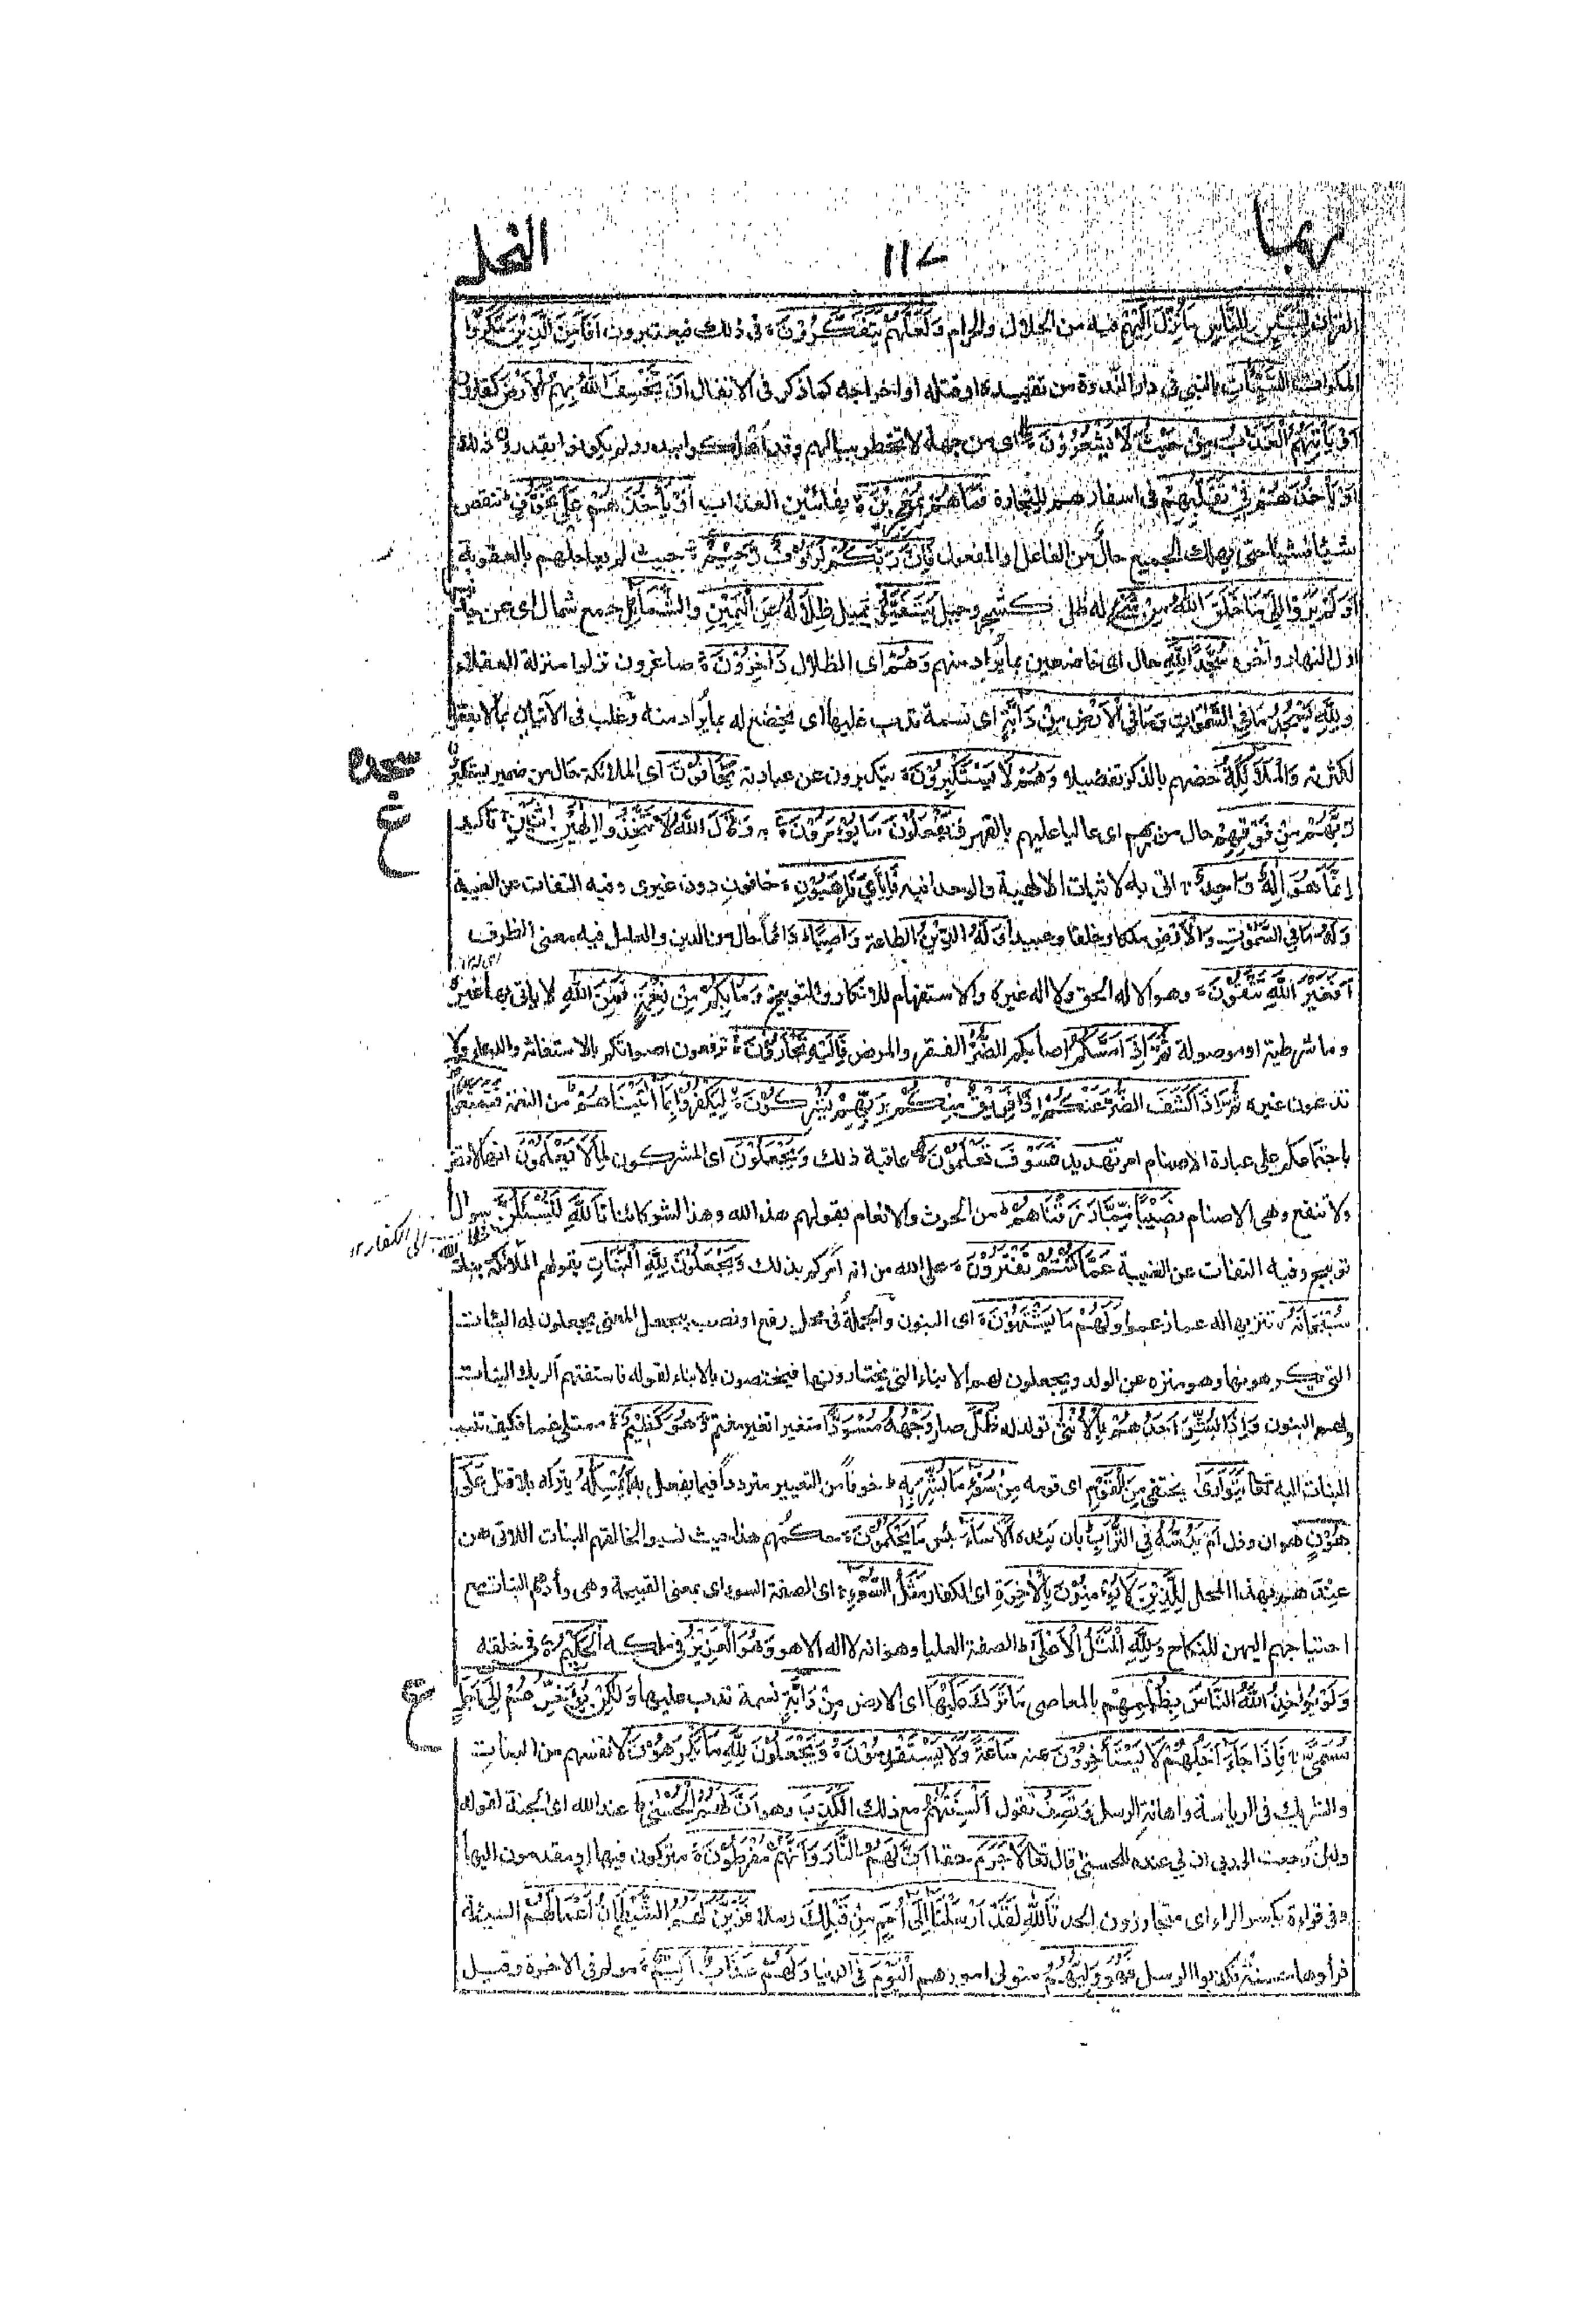 ربما ١١٧ النحل
القران لِتُبَيِّنَ لِلنَّاسِ مَا نُزِّلَ اِلَيْهِمْ فيه من الحلال والحرام وَلَعَلَّهُمْ يَتَفَكَّرُوْنَ في ذلك فيعتبرون اَفَاَمِنَ الَّذِيْنَ مَكَرُوا
المكرات السَّيِّئَاتِ بالنبي في دار الندوة من تقييده او قتله او اخراجه كما ذكر في الانفال اَنْ يَّخْسِفَ اللّٰهُ بِهِمُ الْاَرْضَ كقارون
اَوْ يَاْتِيَهُمُ الْعَذَابُ مِنْ حَيْثُ لَا يَشْعُرُوْنَ اى من جهة لا تخطر ببالهم وقد اهلكوا ببدر ولم يكونوا يقدروا ذلك
اَوْ يَاْخُذَهُمْ فِيْ تَقَلُّبِهِمْ في اسفارهم للتجارة فَمَا هُمْ بِمُعْجِزِيْنَ بفائتين العذاب اَوْ يَاْخُذَهُمْ عَلٰى تَخَوُّفٍ تنقص
شيئا فشيئا حتى يهلك الجميع حال من الفاعل او المفعول فَاِنَّ رَبَّكُمْ لَرَءُوْفٌ رَّحِيْمٌ حيث لم يعاجلهم بالعقوبة
اَوَلَمْ يَرَوْا اِلٰى مَا خَلَقَ اللّٰهُ مِنْ شَيْءٍ له ظل كشجر وجبل يَّتَفَيَّؤُ تميل ظِلَالُهُ عَنِ الْيَمِيْنِ وَالشَّمَائِلِ جمع شمال اى عن جانبيهما
اول النهار واخره سُجَّدًا لِّلّٰهِ حال اى خاضعين بما يراد منهم وَهُمْ اى الظلال دَاخِرُوْنَ صاغرون نزلوا منزلة العقلاء
وَلِلّٰهِ يَسْجُدُ مَا فِي السَّمٰوٰتِ وَمَا فِي الْاَرْضِ مِنْ دَابَّةٍ اى نسمة تدب عليها اى يخضع له بما يراد منه وغلب في الاتيان بما لا يعقل
لكثرته وَالْمَلٰئِكَةُ خصهم بالذكر تفضيلا وَهُمْ لَا يَسْتَكْبِرُوْنَ يتكبرون عن عبادته يَخَافُوْنَ اى الملائكة حال من ضمير يستكبرون
سجده
ع
رَبَّهُمْ مِّنْ فَوْقِهِمْ حال من هم اى عاليا عليهم بالقهر وَيَفْعَلُوْنَ مَا يُؤْمَرُوْنَ به وَقَالَ اللّٰهُ لَا تَتَّخِذُوْا اِلٰهَيْنِ اثْنَيْنِ تاكيد
اِنَّمَا هُوَ اِلٰهٌ وَّاحِدٌ اتى به لاثبات الالهية والوحدانية فَاِيَّايَ فَارْهَبُوْنِ خافون دون غيرى وفيه التفات عن الغيبة
وَلَهُ مَا فِي السَّمٰوٰتِ وَالْاَرْضِ ملكا وخلقا وعبيدا وَلَهُ الدِّيْنُ الطاعة وَاصِبًا دائما حال من الدين والعامل فيه معنى الظرف
اَفَغَيْرَ اللّٰهِ تَتَّقُوْنَ وهو الاله الحق ولا اله غيره والاستفهام للانكار والتوبيخ وَمَا بِكُمْ مِّنْ نِّعْمَةٍ فَمِنَ اللّٰهِ لا ياتي بها غيره
وما شرطية او موصولة ثُمَّ اِذَا مَسَّكُمُ اصابكم الضُّرُّ الفقر والمرض فَاِلَيْهِ تَجْاَرُوْنَ ترفعون اصواتكم بالاستغاثة والدعاء ولا
تدعون غيره ثُمَّ اِذَا كَشَفَ الضُّرَّ عَنْكُمْ اِذَا فَرِيْقٌ مِّنْكُمْ بِرَبِّهِمْ يُشْرِكُوْنَ لِيَكْفُرُوْا بِمَا اٰتَيْنَاهُمْ من النعمة فَتَمَتَّعُوْا
باجتماعكم على عبادة الاصنام امر تهديد فَسَوْفَ تَعْلَمُوْنَ عاقبة ذلك وَيَجْعَلُوْنَ اى المشركون لِمَا لَا يَعْلَمُوْنَ انها لا تضر
ولا تنفع وهى الاصنام نَصِيْبًا مِّمَّا رَزَقْنَاهُمْ من الحرث والانعام بقولهم هذا لله وهذا لشركائنا تَاللّٰهِ لَتُسْئَلُنَّ سوال
توبيخ وفيه التفات عن الغيبة عَمَّا كُنْتُمْ تَفْتَرُوْنَ على الله من انه امركم بذلك وَيَجْعَلُوْنَ لِلّٰهِ الْبَنَاتِ بقولهم الملائكة بنات الله
سُبْحَانَهُ تنزيها له عما زعموا وَلَهُمْ مَّا يَشْتَهُوْنَ اى البنون والجملة في محل رفع او نصب بيجعل المعنى يجعلون له البنات
التى يكرهونها وهو منزه عن الولد ويجعلون لهم الابناء التى يختارونها فيختصون بالابناء لقوله فاستفتهم الربك البنات
ولهم البنون وَاِذَا بُشِّرَ اَحَدُهُمْ بِالْاُنْثٰى تولد له ظَلَّ صار وَجْهُهُ مُسْوَدًّا متغيرا تغير مغتم وَّهُوَ كَظِيْمٌ ممتلئ غما فكيف تنسب
البنات اليه تعالى يَتَوَارٰى يختفى مِنَ الْقَوْمِ اى قومه مِنْ سُوْءِ مَا بُشِّرَ بِهِ خوفا من التعيير مترددا فيما يفعل به اَيُمْسِكُهُ يتركه بلا قتل عَلٰى
هُوْنٍ هوان وذل اَمْ يَدُسُّهُ فِي التُّرَابِ بان يئده اَلَا سَاءَ بئس مَا يَحْكُمُوْنَ حكمهم هذا حيث نسبوا لخالقهم البنات اللاتى هن
عندهم بهذا المحل لِلَّذِيْنَ لَا يُؤْمِنُوْنَ بِالْاٰخِرَةِ اى الكفار مَثَلُ السَّوْءِ اى الصفة السوءى بمعنى القبيحة وهى وأدهم البنات مع
احتياجهم اليهن للنكاح وَلِلّٰهِ الْمَثَلُ الْاَعْلٰى الصفة العليا وهو انه لا اله الا هو وَهُوَ الْعَزِيْزُ في ملكه الْحَكِيْمُ في خلقه
ع
وَلَوْ يُؤَاخِذُ اللّٰهُ النَّاسَ بِظُلْمِهِمْ بالمعاصى مَّا تَرَكَ عَلَيْهَا اى الارض مِنْ دَابَّةٍ نسمة تدب عليها وَّلٰكِنْ يُّؤَخِّرُهُمْ اِلٰى اَجَلٍ
مُّسَمًّى فَاِذَا جَاءَ اَجَلُهُمْ لَا يَسْتَاْخِرُوْنَ عنه سَاعَةً وَّلَا يَسْتَقْدِمُوْنَ وَيَجْعَلُوْنَ لِلّٰهِ مَا يَكْرَهُوْنَ لانفسهم من البنات
والشريك في الرياسة واهانة الرسل وَتَصِفُ تقول اَلْسِنَتُهُمُ مع ذلك الْكَذِبَ وهو اَنَّ لَهُمُ الْحُسْنٰى عند الله اى الجنة لقوله
ولئن رجعت الى ربى ان لى عنده للحسنى قال تعالى لَا جَرَمَ حقا اَنَّ لَهُمُ النَّارَ وَاَنَّهُمْ مُّفْرَطُوْنَ متركون فيها او مقدمون اليها
وفي قراءة بكسر الراء اى متجاوزون الحد تَاللّٰهِ لَقَدْ اَرْسَلْنَا اِلٰى اُمَمٍ مِّنْ قَبْلِكَ رسلا فَزَيَّنَ لَهُمُ الشَّيْطَانُ اَعْمَالَهُمْ السيئة
فرأوها حسنة فكذبوا الرسل فَهُوَ وَلِيُّهُمُ متولى امورهم الْيَوْمَ في الدنيا وَلَهُمْ عَذَابٌ اَلِيْمٌ مولم في الاخرة وقيل